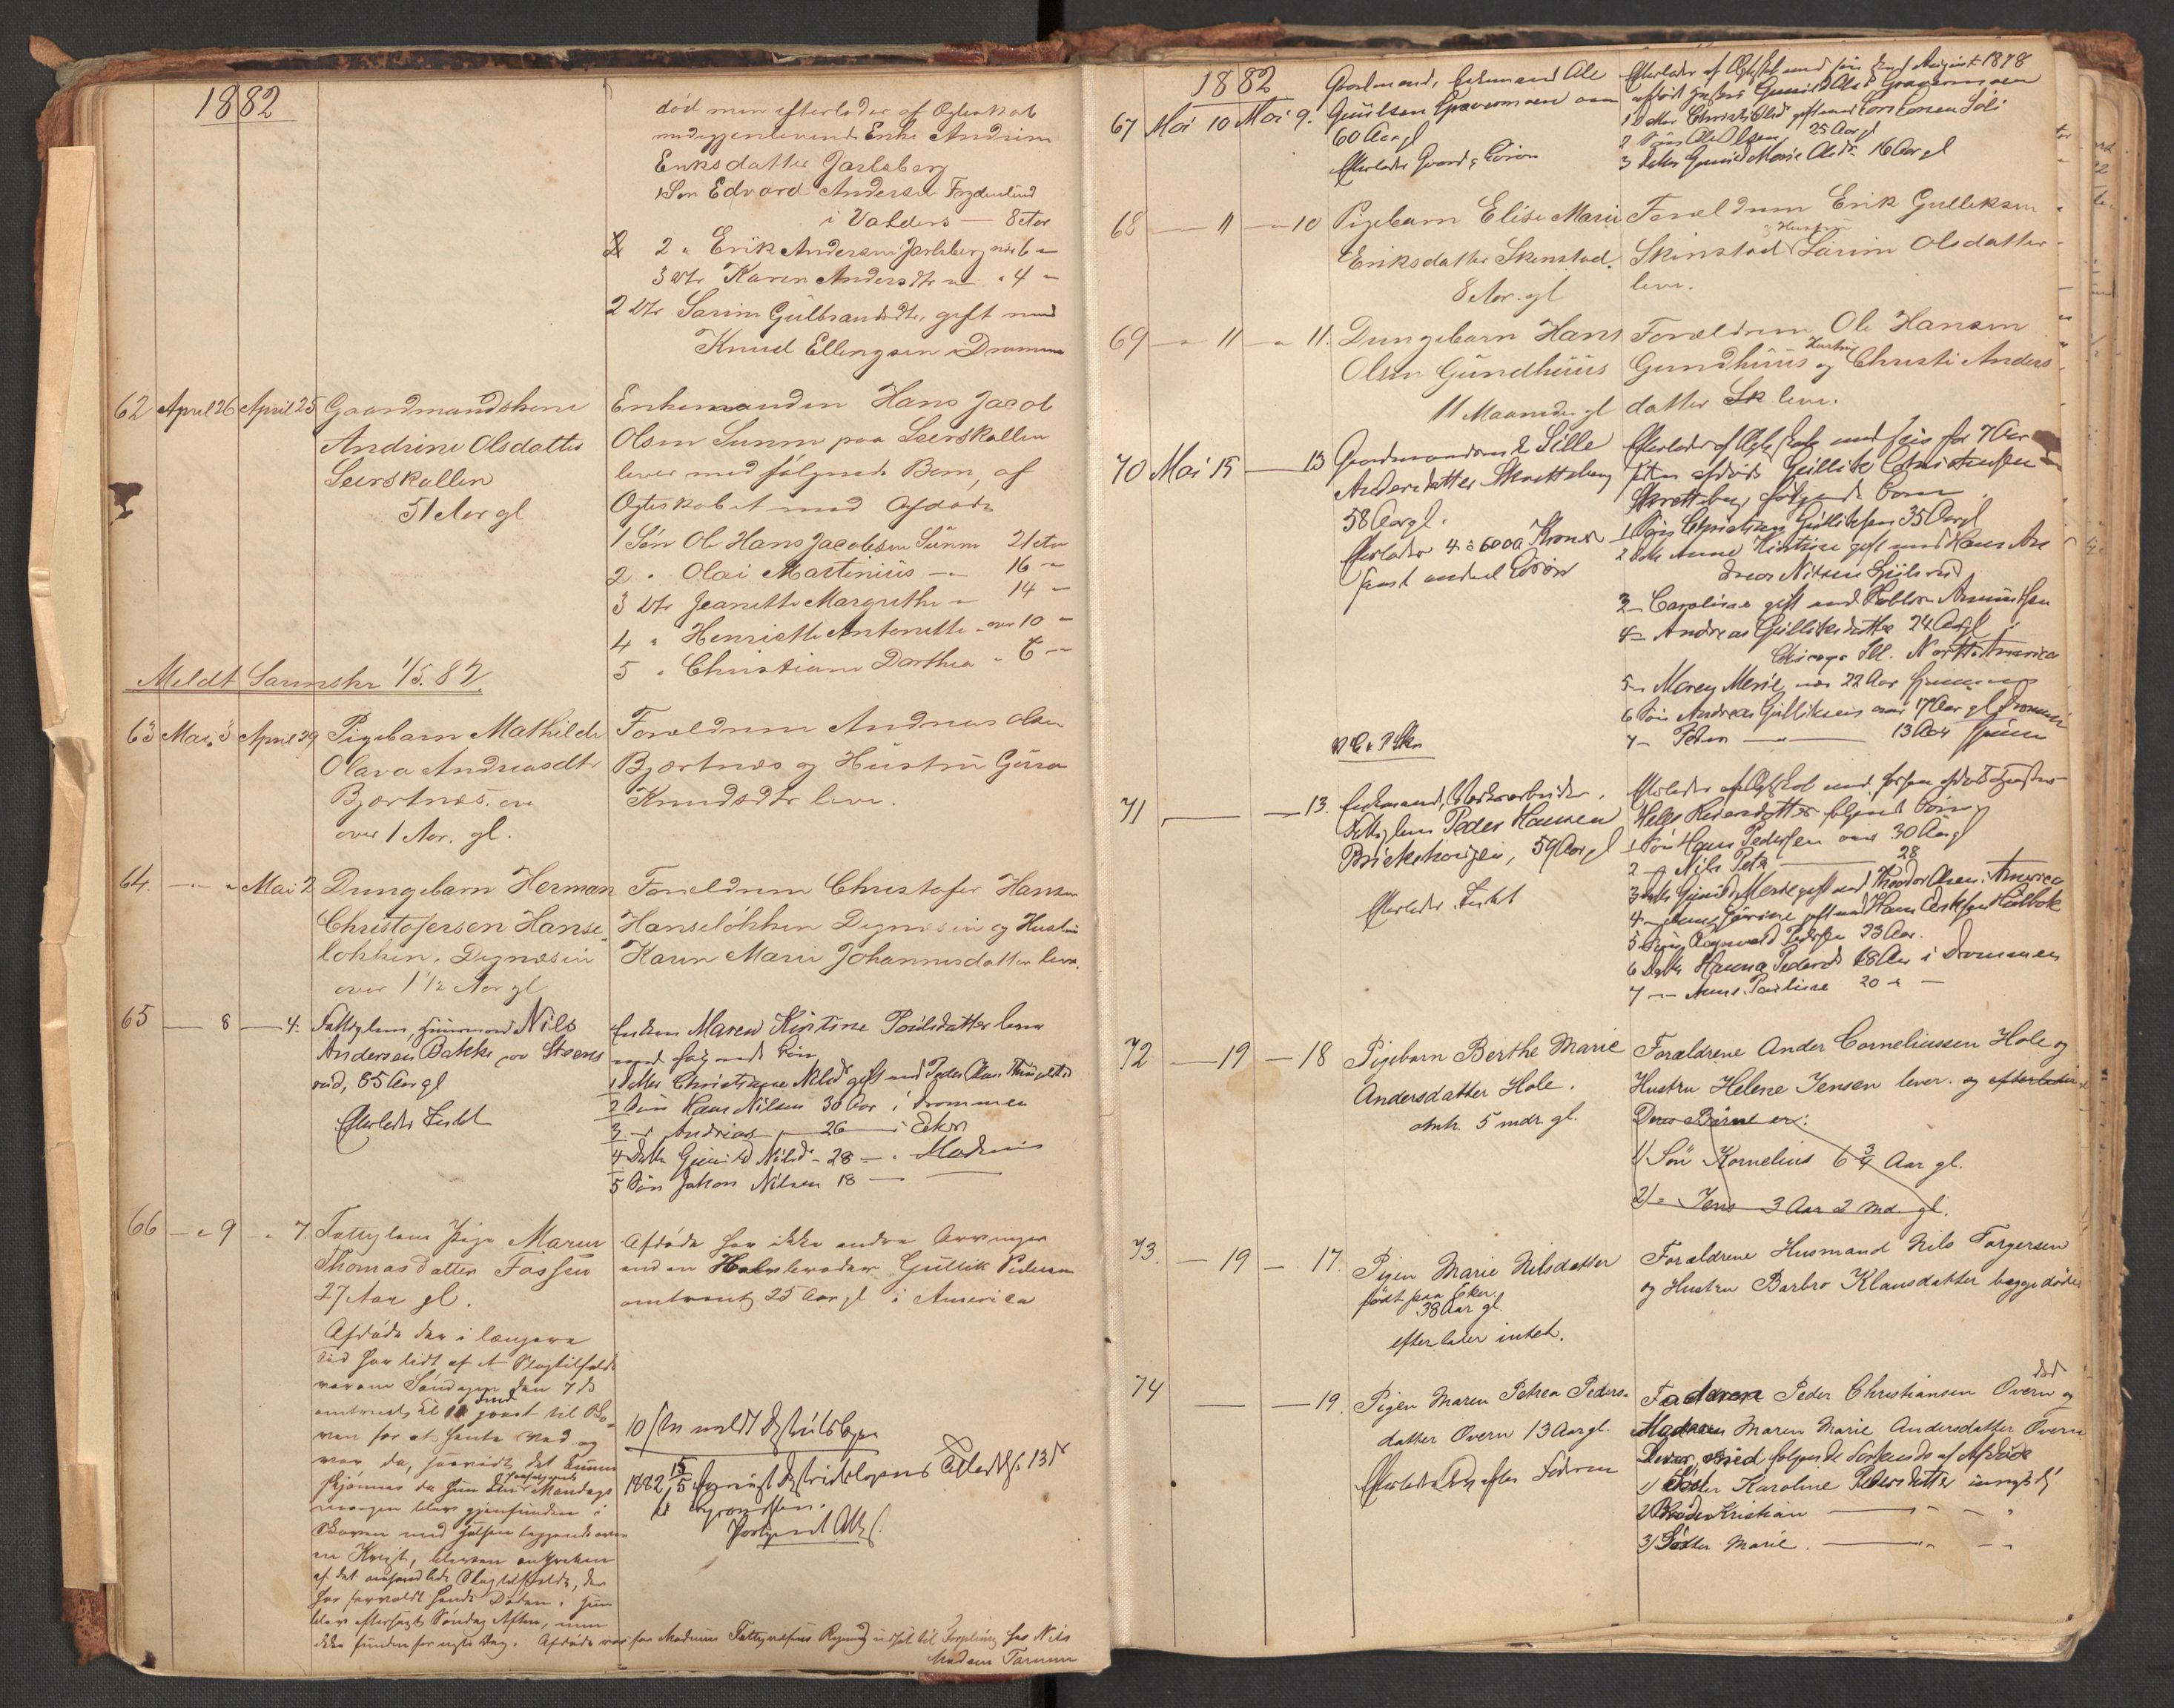 1882
død men efterlader af Egteskab
med gjenlevende Enke Andrine
Eriksdatter Jarlsberg
1 Søn Edvard Andersen Frydenlund
i Valders — 8 Aar
2 " Erik Andersen Jarlsberg over 6 "
3 Dtr Karen Andersdtr " " 4 "
2 Dtr Sarine Gulbrandsdtr, gift med
Knud Ellingsen Drammen
62 April 26 April 25 Gaardmandskone
Andrine Olsdatter
Leerskallen
51 Aar gl
Enkemanden Hans Jacob
Olsen Sunne paa Leerskallen
lever med følgende Børn, af
Egteskabet med Afdøde
1 Søn Ole Hans Jacobsen Sunne 21 Aar
2 " Olai Martinius — 16 "
3 Dtr Jeanette Margrethe " 14 "
4 " Henriette Antonette " over 10 "
5 " Christiane Dorthea " 6 "
Meldt Sorenskr 1/5.82.
63 Mai 3 April 29 Pigebarn Mathilde
Olava Andreasdtr
Bjørtnæs.
over 1 Aar. gl.
Forældrene Andreas Olsen
Bjørtnæs og Hustru Guro
Knudsdtr lever.
64. — " Mai 2 Drengebarn Herman
Christofersen Hanse-
løkken, Dynæsin
over 1 1/2 Aar gl
Forældrene Christofer Hansen
Hanseløkken Dynæsin og Hustru
Karen Marie Johannesdatter lever.
65 — 8 — 4. Fattiglem, Nils
Andersen Bakke
85 Aar gl
Efterlader Intet
Enken Maren Kirstine Poulsdatter lever
med følgende Børn
1 Datter Christiane Nilsdr gift med Peder Olsen
2 Søn Hans Nilsen 30 Aar i Drammen
3 — Andreas — 26 — i Eker
4 Datter Gunild Nilsd — 28 — Modum
5 Søn Johan Nilsen 18 —
66 — " 9 — " 7. Fattiglem Pige Maren
Thomasdatter Fossen
27 Aar gl.
Afdøde har ikke andre Arvinger
end en Halvbroder Gullik Pedersen
omtrent 25 Aar gl i America
Afdøde der i længere
Tid har lidt af et Slagtilfælde
var om Søndagen den 7 ds
gaaet til Sko-
ven for at hente Ved og
var da, saavidt det kunne
skjønnes da hun Mandags
morgen blev gjenfunden i
Skoven med Halsen liggende over
en Kvist, bleven
af det omhandlede Slagtilfælde, der
har forvoldt hendes Døden. Hun
blev eftersøgt Søndag Aften, men
ikke funden før neste Dag. Afdøde var for Modums Fattigvæsens Regning udsat til Forpleining hos Nils
Madsen
10/5 meldt Distriktslægen
1882 15/5
1882
67 Mai 10 Mai 9. Gaardmand, Enkemand Ole
Guulsen Gravermoen
60 Aar gl
Efterlader Gaard & Løsøre
Efterlader af Egteskab med sin August 1878
afdøde Hustru Gunild Gravermoen
1 Datter Christi Olsd gift med Lars Larsen
2 Søn Ole Olsen 25 Aar gl
3 Datter Gunild Marie Olsdr 16 Aar gl
68 — 11 — 10 Pigebarn Elise Marie
Eriksdatter Skinstad.
8 Aar. gl
Forældrene Erik Gulliksen
Skinstad & Hustru Sarine Olsdatter
lever.
69 — " 11 — " 11. Drengebarn Hans
Olsen Gundhuus
11 Maaneder gl
Forældrene Ole Hansen
Gundhuus og Hustru Christi Anders
datter lever.
70 Mai 15 — 13 Gaardmandsenke Sille
Andersdatter Skretteberg
58 Aar gl.
Efterlader 4 à 6000 Kroner
samt endel Løsøre
Efterlader af Egteskab med sin for 7 Aar
siden afdøde Gullik Christensen
Skretteberg følgende Børn
1 Søn Christian Gulliksen 35 Aar gl
2 Datter Anne Kirstine gift med Hans
Nilsen
3 — Caroline gift med Amundsen
4 — Andrea Gulliksdatter 24 Aar gl
Chicago Ill. North America
5 — Maren Marie over 22 Aar hjemme
6 Søn Andreas Gulliksen over 17 Aar gl Drammen
7 — Peder — 13 Aar hjemme
71 — 13. Enkemand,
Fattiglem Peder Hansen
59 Aar gl
Efterlader Intet
Efterlader af Egteskab med afdøde Hustru
Helle følgende Børn
1 Søn Hans Pedersen over 30 Aar gl
2 — Nils Peder — 28
3 Datter Gunild Marie gift med Theodor Olsen, America
4 — gift med Hans
5 Søn Ragnvald Pedersen 23 Aar.
6 Datter Hanna Pedersd 18 Aar i Drammen
7 — Anne Pauline 20 — —
72 — 19 — 18 Pigebarn Berthe Marie
Andersdatter Hole.
omtr. 5 mdr. gl.
Forældrene Ander Corneliussen Hole og
Hustru Helene Jensen lever. og efterlader
Deres Børn er:
1) Søn Kornelius 6 3/4 Aar gl.
2) " Jens 3 Aar 2 md. gl.
73. — 19 — 17. Pigen Marie Nilsdatter
født paa Eker
38 Aar gl.
efterlader intet.
Forældrene Husmand Nils Torgersen
og Hustru Barbro Klausdatter begge døde
74 — — 19. Pigen Maren Petrea Peders-
datter Overn 13 Aar gl.
Efterlader Arv efter Faderen
Faderen Peder Christiansen Overn død og
Moderen Maren Marie Andersdatter Overn
Lever, med følgende Søskende af Afdøde
1) Søster Karoline Pedersdatter
2) Broder Kristian — " — "
3) Søster Marie. — " — "